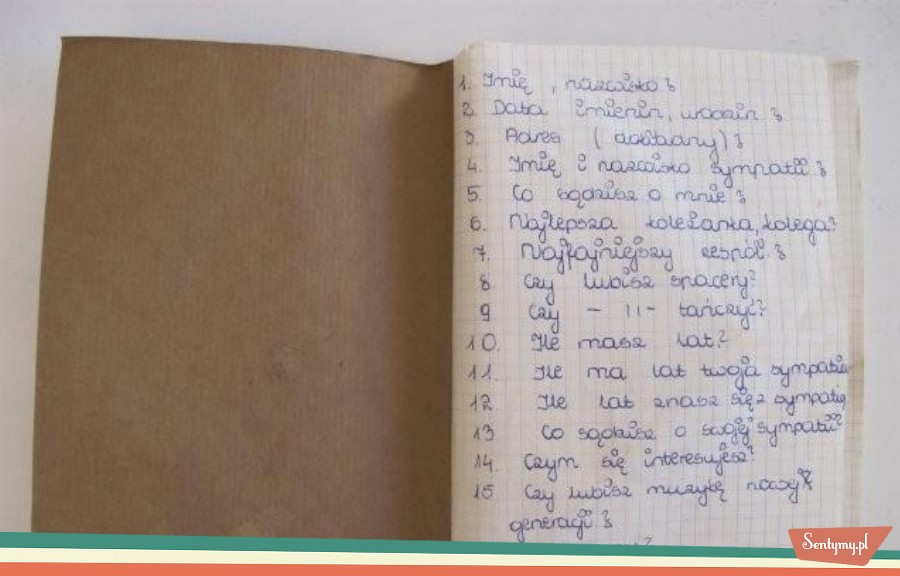 1. Imię, nazwisko?
2. Data imienin, urodzin?
3. Adres (dokładny)?
4. Imię i nazwisko sympatii?
5. Co sądzisz o mnie?
6. Najlepsza koleżanka, kolega?
7. Najfajniejszy zespół?
8. Czy lubisz spacery?
9 Czy – 11 – tańczyć?
10. Ile masz lat?
11. Ile ma lat twoja sympatia
12 Ile lat znasz się z sympatią
13 Co sądzisz o swojej sympatii?
14. Czym się interesujesz?
15 Czy lubisz muzykę nowej
generacji?
Sentymy.pl